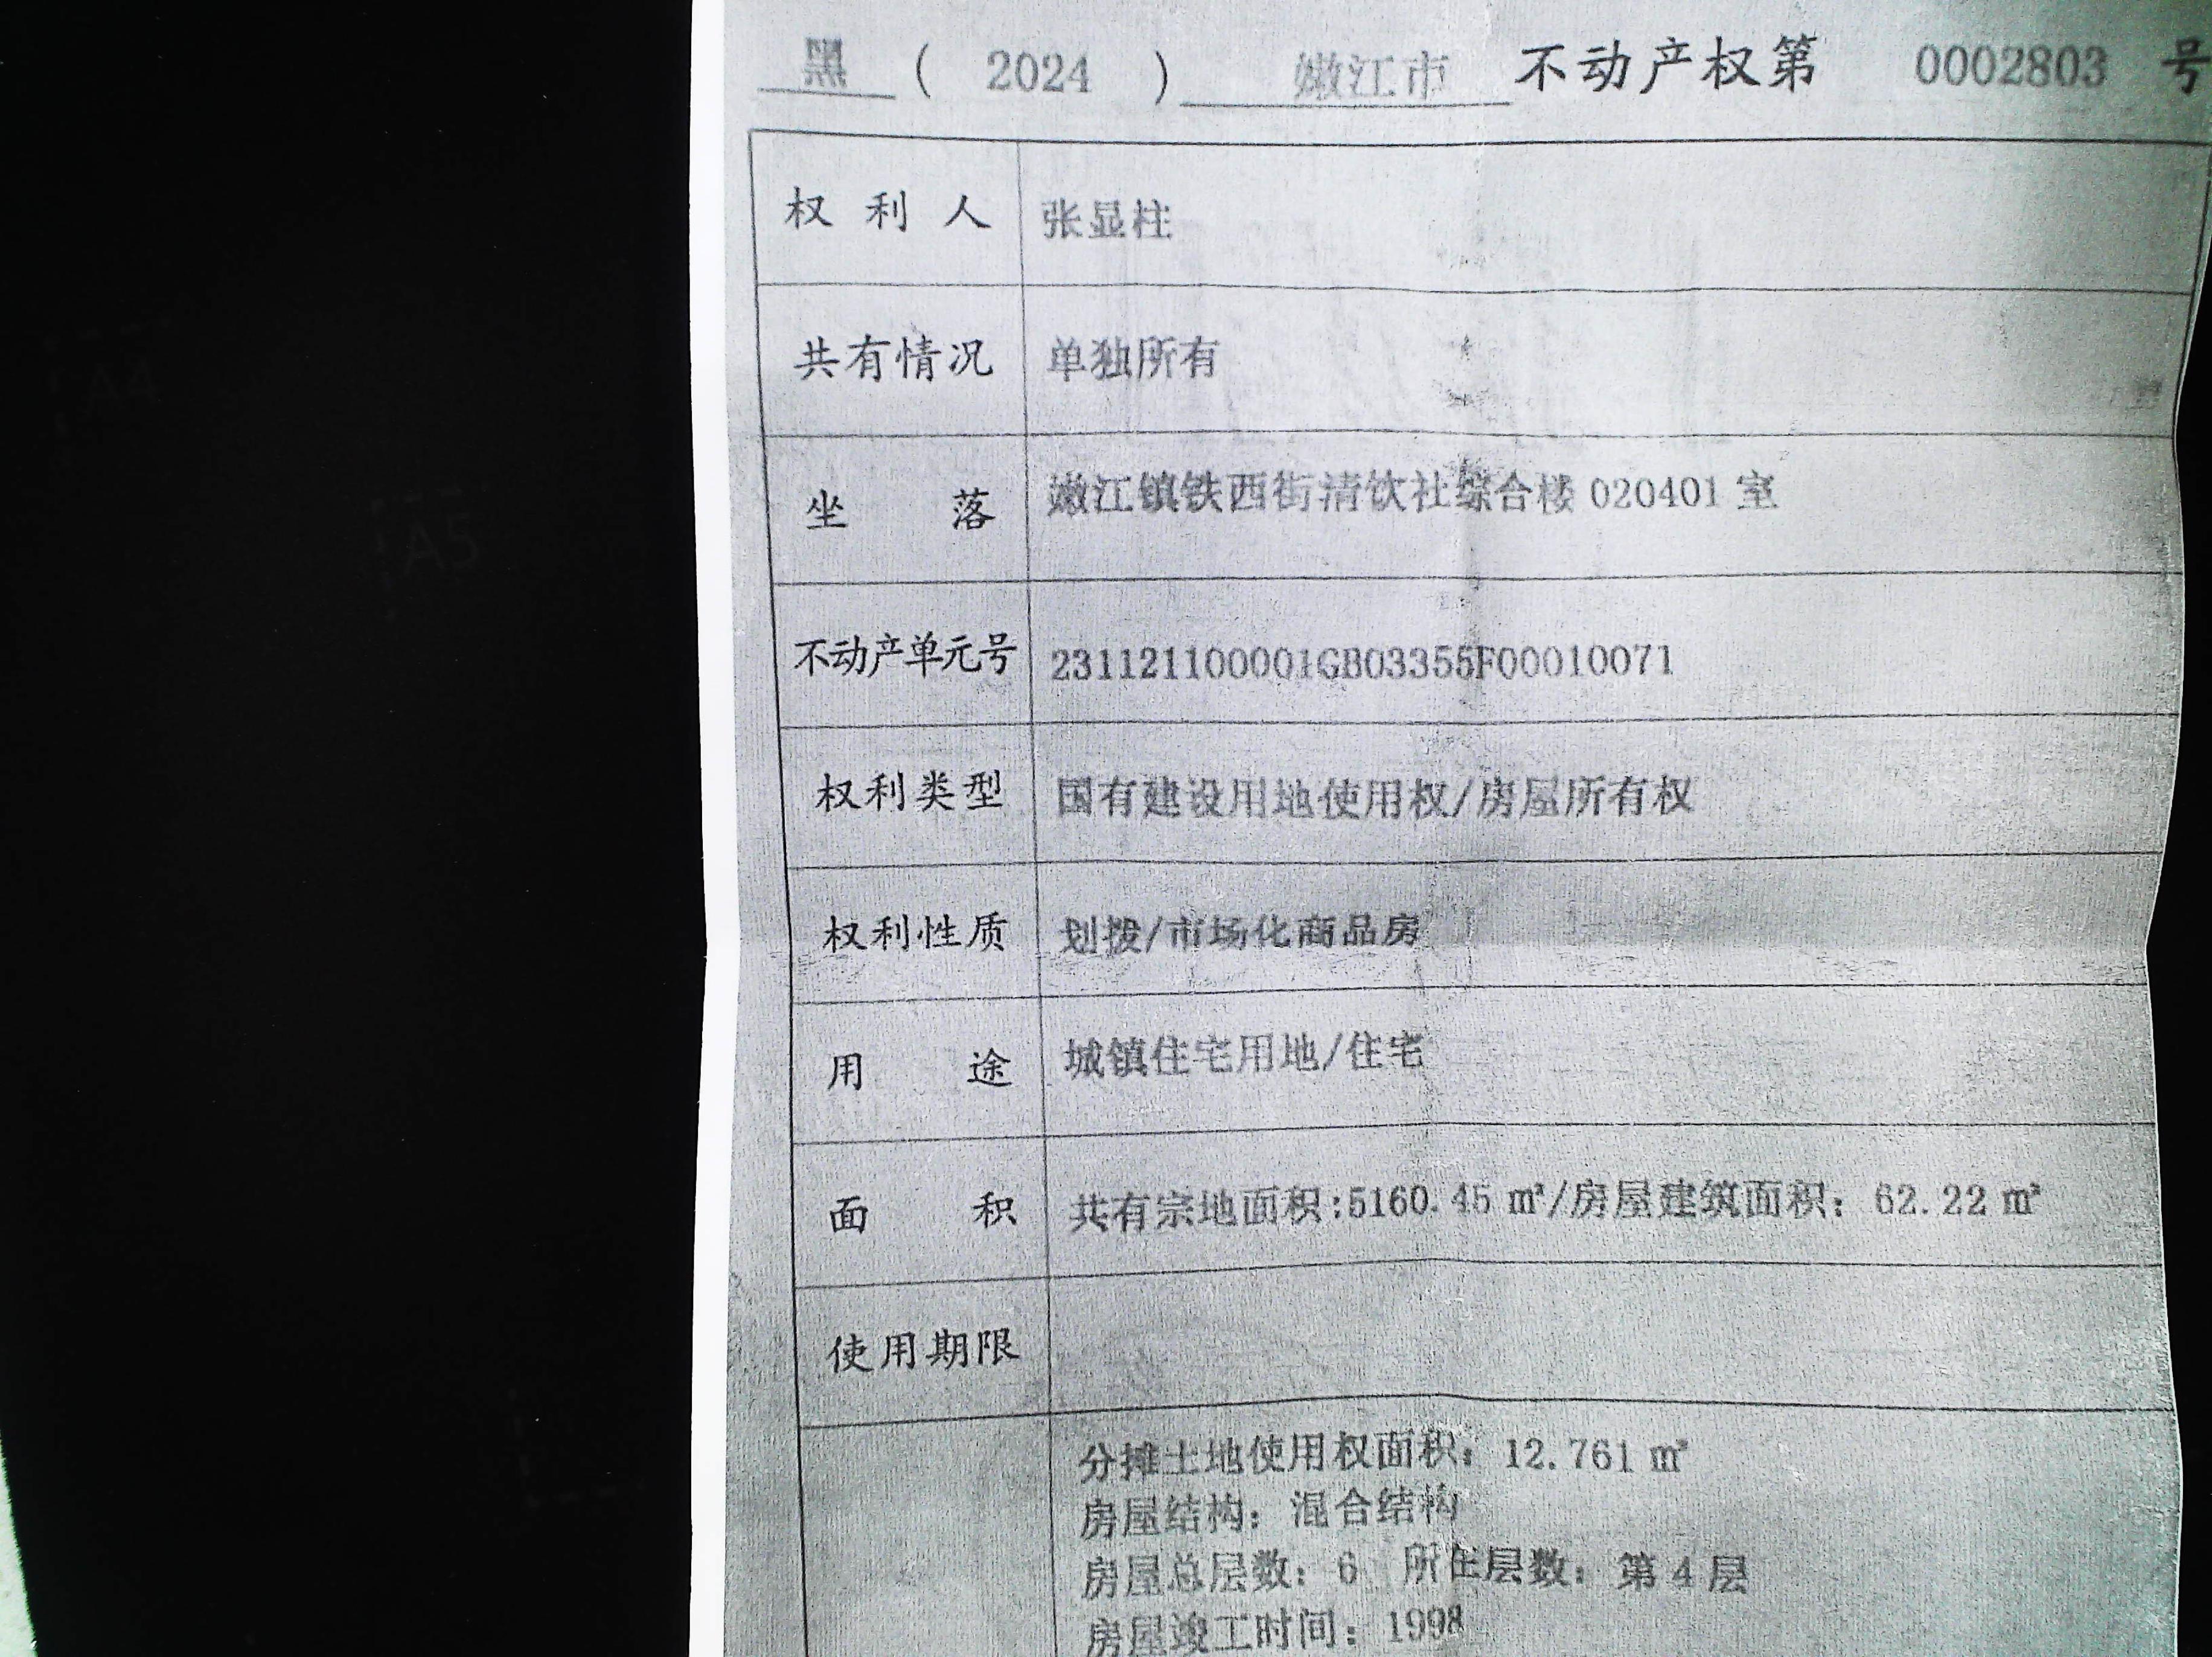 黑 ( 2024 ) 嫩江市 不动产权第 0002803 号
权利人 张显柱
共有情况 单独所有
坐落 嫩江镇铁西街清饮社综合楼 020401 室
不动产单元号 231121100001GB03355F00010071
权利类型 国有建设用地使用权/房屋所有权
权利性质 划拨/市场化商品房
用途 城镇住宅用地/住宅
面积 共有宗地面积:5160.45 ㎡/房屋建筑面积: 62.22 ㎡
使用期限
分摊土地使用权面积: 12.761 ㎡
房屋结构: 混合结构
房屋总层数: 6 所在层数: 第 4 层
房屋竣工时间: 1998
A4
A5